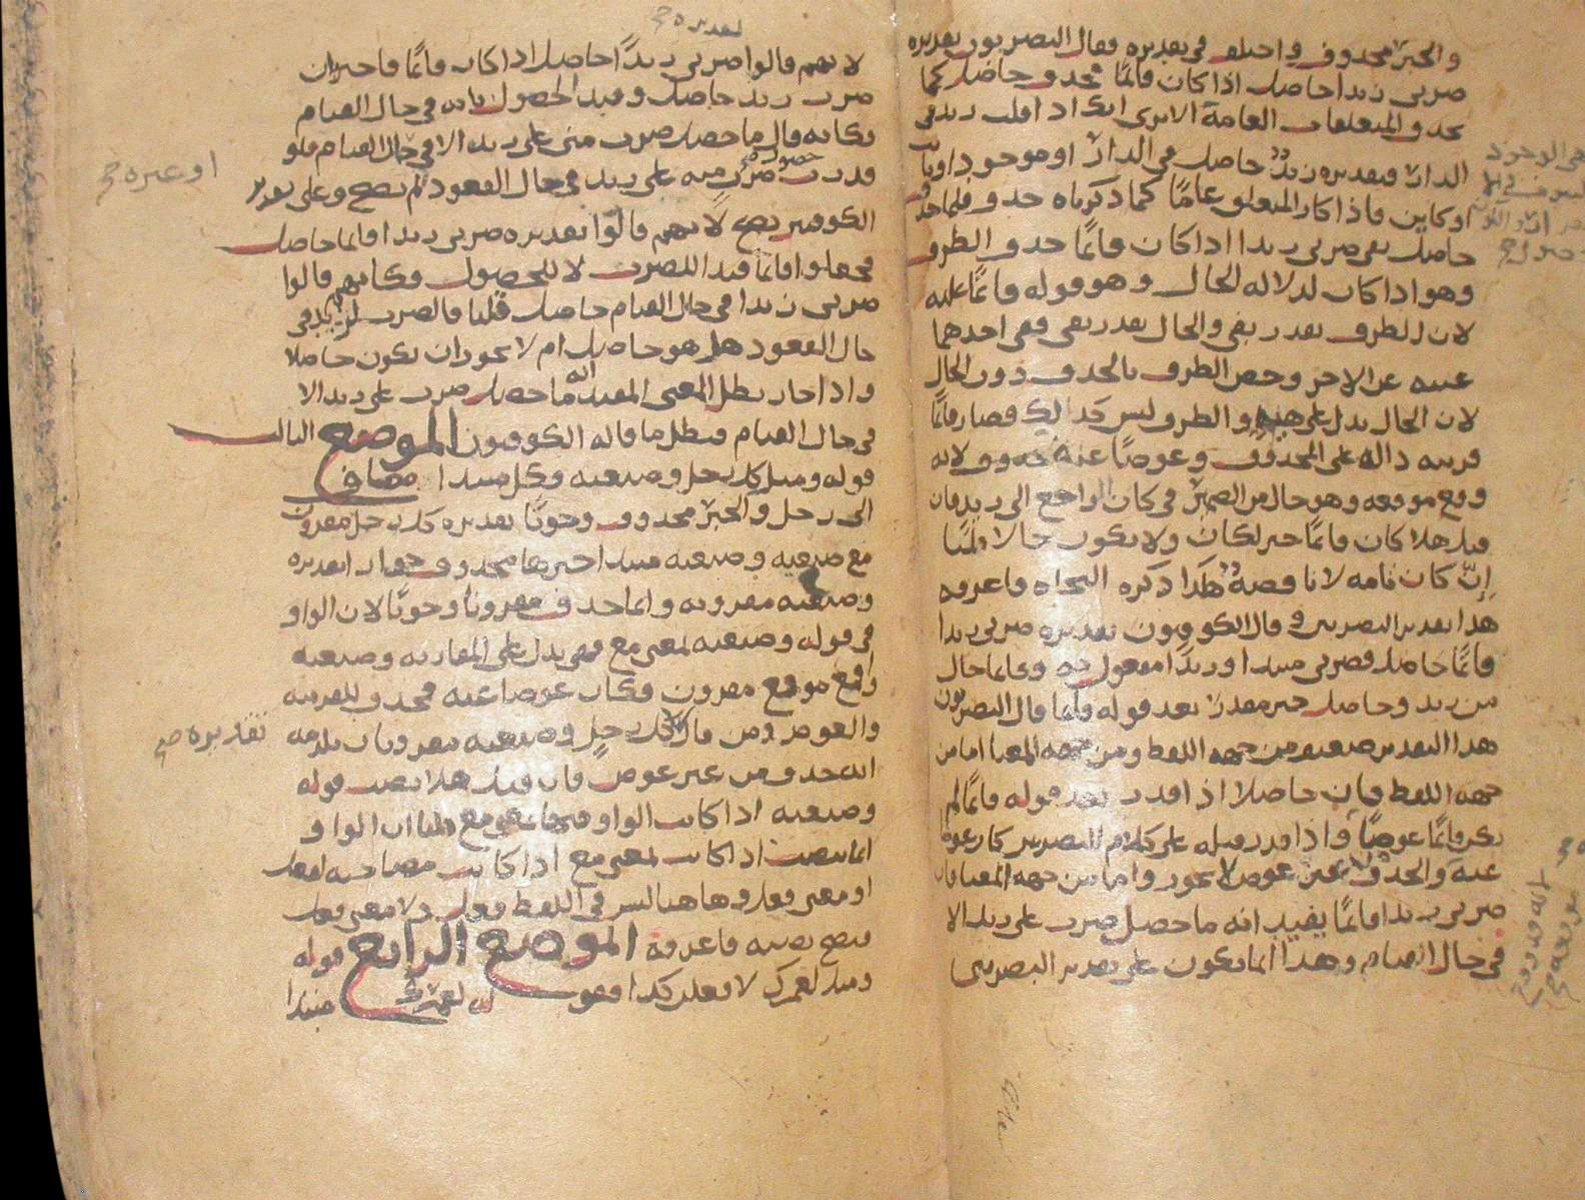 والخبر محذوف واختلف في تقديره فقال البصريون تقديره
ضربي زيدا حاصل اذا كان قائمًا فحذف حاصل كما
تحذف المتعلقات العامة الا ترى انك اذا قلت زيد في
الدار فتقديره زيدٌ حاصل في الدار او موجود او ثابت
او كاين فاذا كان المتعلق عامًا كما ذكرناه حذف فلما حذف
حاصل بقي ضربي زيدا اذا كان قائمًا حذف الظرف
وهو اذا كان لدلالة الحال وهو قوله قائمًا عليه
لان الظرف يقدر بفي والحال يقدر بفي ففي احدهما
غنيه عن الاخر وخص الظرف بالحذف دون الحال
لان الحال يدل على هيئة والظرف ليس كذلك فصار قائمًا
قرينه داله على المحذوف وعوضًا عنه لانه
وقع موقعه وهو حال من الضمير في كان الراجع الى زيد فان
قيل هلا كان قائمًا خبر لكان ولا يكون حالا قلنا
إنّ كان تامه لا ناقصةٌ هكذا ذكره النحاه فاعرفه
هذا تقدير البصريين وقال الكوفيون تقديره ضربي زيدا
قائمًا حاصل فضربي مبتدا وزيدًا مفعول به وقائما حال
من زيد وحاصل خبر مقدرٌ بعد قوله قائما قال البصريون
هذا التقدير ضعيف من جهه اللفظ ومن جهه المعنا اما من
جهه اللفظ فان حاصلا اذا قدر بعد قوله قائمًا لم
يكن قائمًا عوضًا واذا قدر قبله على كلام البصريين كان عوضًا
عنه والحذف لا عن عوض لا يجوز واما من جهه المعنا فان
ضربي زيدا قائمًا يفيد انه ما حصل ضرب على زيد الا
في حال القيام وهذا انما يكون على تقدير البصريين
تقديره
لانهم قالوا ضربي زيدًا حاصل اذا كان قائمًا فاخبر ان
ضرب زيد حاصل وقيد الحصول بانه في حال القيام
فكانه قال ما حصل ضرب مني على زيد الا في حال القيام فلو
قدرت حصول ضرب منه على زيد في حال القعود لم يصح وعلى تقدير
الكوفيين يصح لانهم قالوا تقديره ضربي زيدا قائما حاصل
فجعلوا قائمًا قيدا للضرب لا للحصول فكانهم قالوا
ضربي زيدا في حال القيام حاصل قلنا فالضرب لزيد في
حال القعود هل هو حاصل ام لا يجوز ان يكون حاصلا
واذا جاز بطل المعنى المفيد انه ما حصل ضرب على زيد الا
في حال القيام فبطل ما قاله الكوفيون الموضع الثالث
قوله ومثل كل رجل وضيعته وكل مبتدا مضاف
الى رجل والخبر محذوف وجوبًا تقديره كل رجل مقرون
مع ضيعته وضيعته مبتدا خبرها محذوف جوازا تقديره
وضيعته مقرونه وانما حذف مقرونا وجوبًا لان الواو
في قوله وضيعته لمعنى مع فهي يدل على المقارنه وضيعته
واقع موقع مقرون فكان عوضا عنه فحذف للقرينه
والعوض ومن قال كل رجل وضيعته مقرونان يلزمه
انه حذف من غير عوض فان قيل هلا نصب قوله
وضيعته اذا كانت الواو فيها بمعنى مع قلنا ان الواو
انما ينصب اذا كانت لمعنى مع اذا كانت مصاحبه لفعل
او معنى فعل وهاهنا ليس في اللفظ فعل ولا معنى فعل
فيصح نصبه فاعرفه الموضع الرابع قوله
ومثل لعمرك لافعلن كذا فقوله لعمرك مبتدا
او غيره
تقديره صح